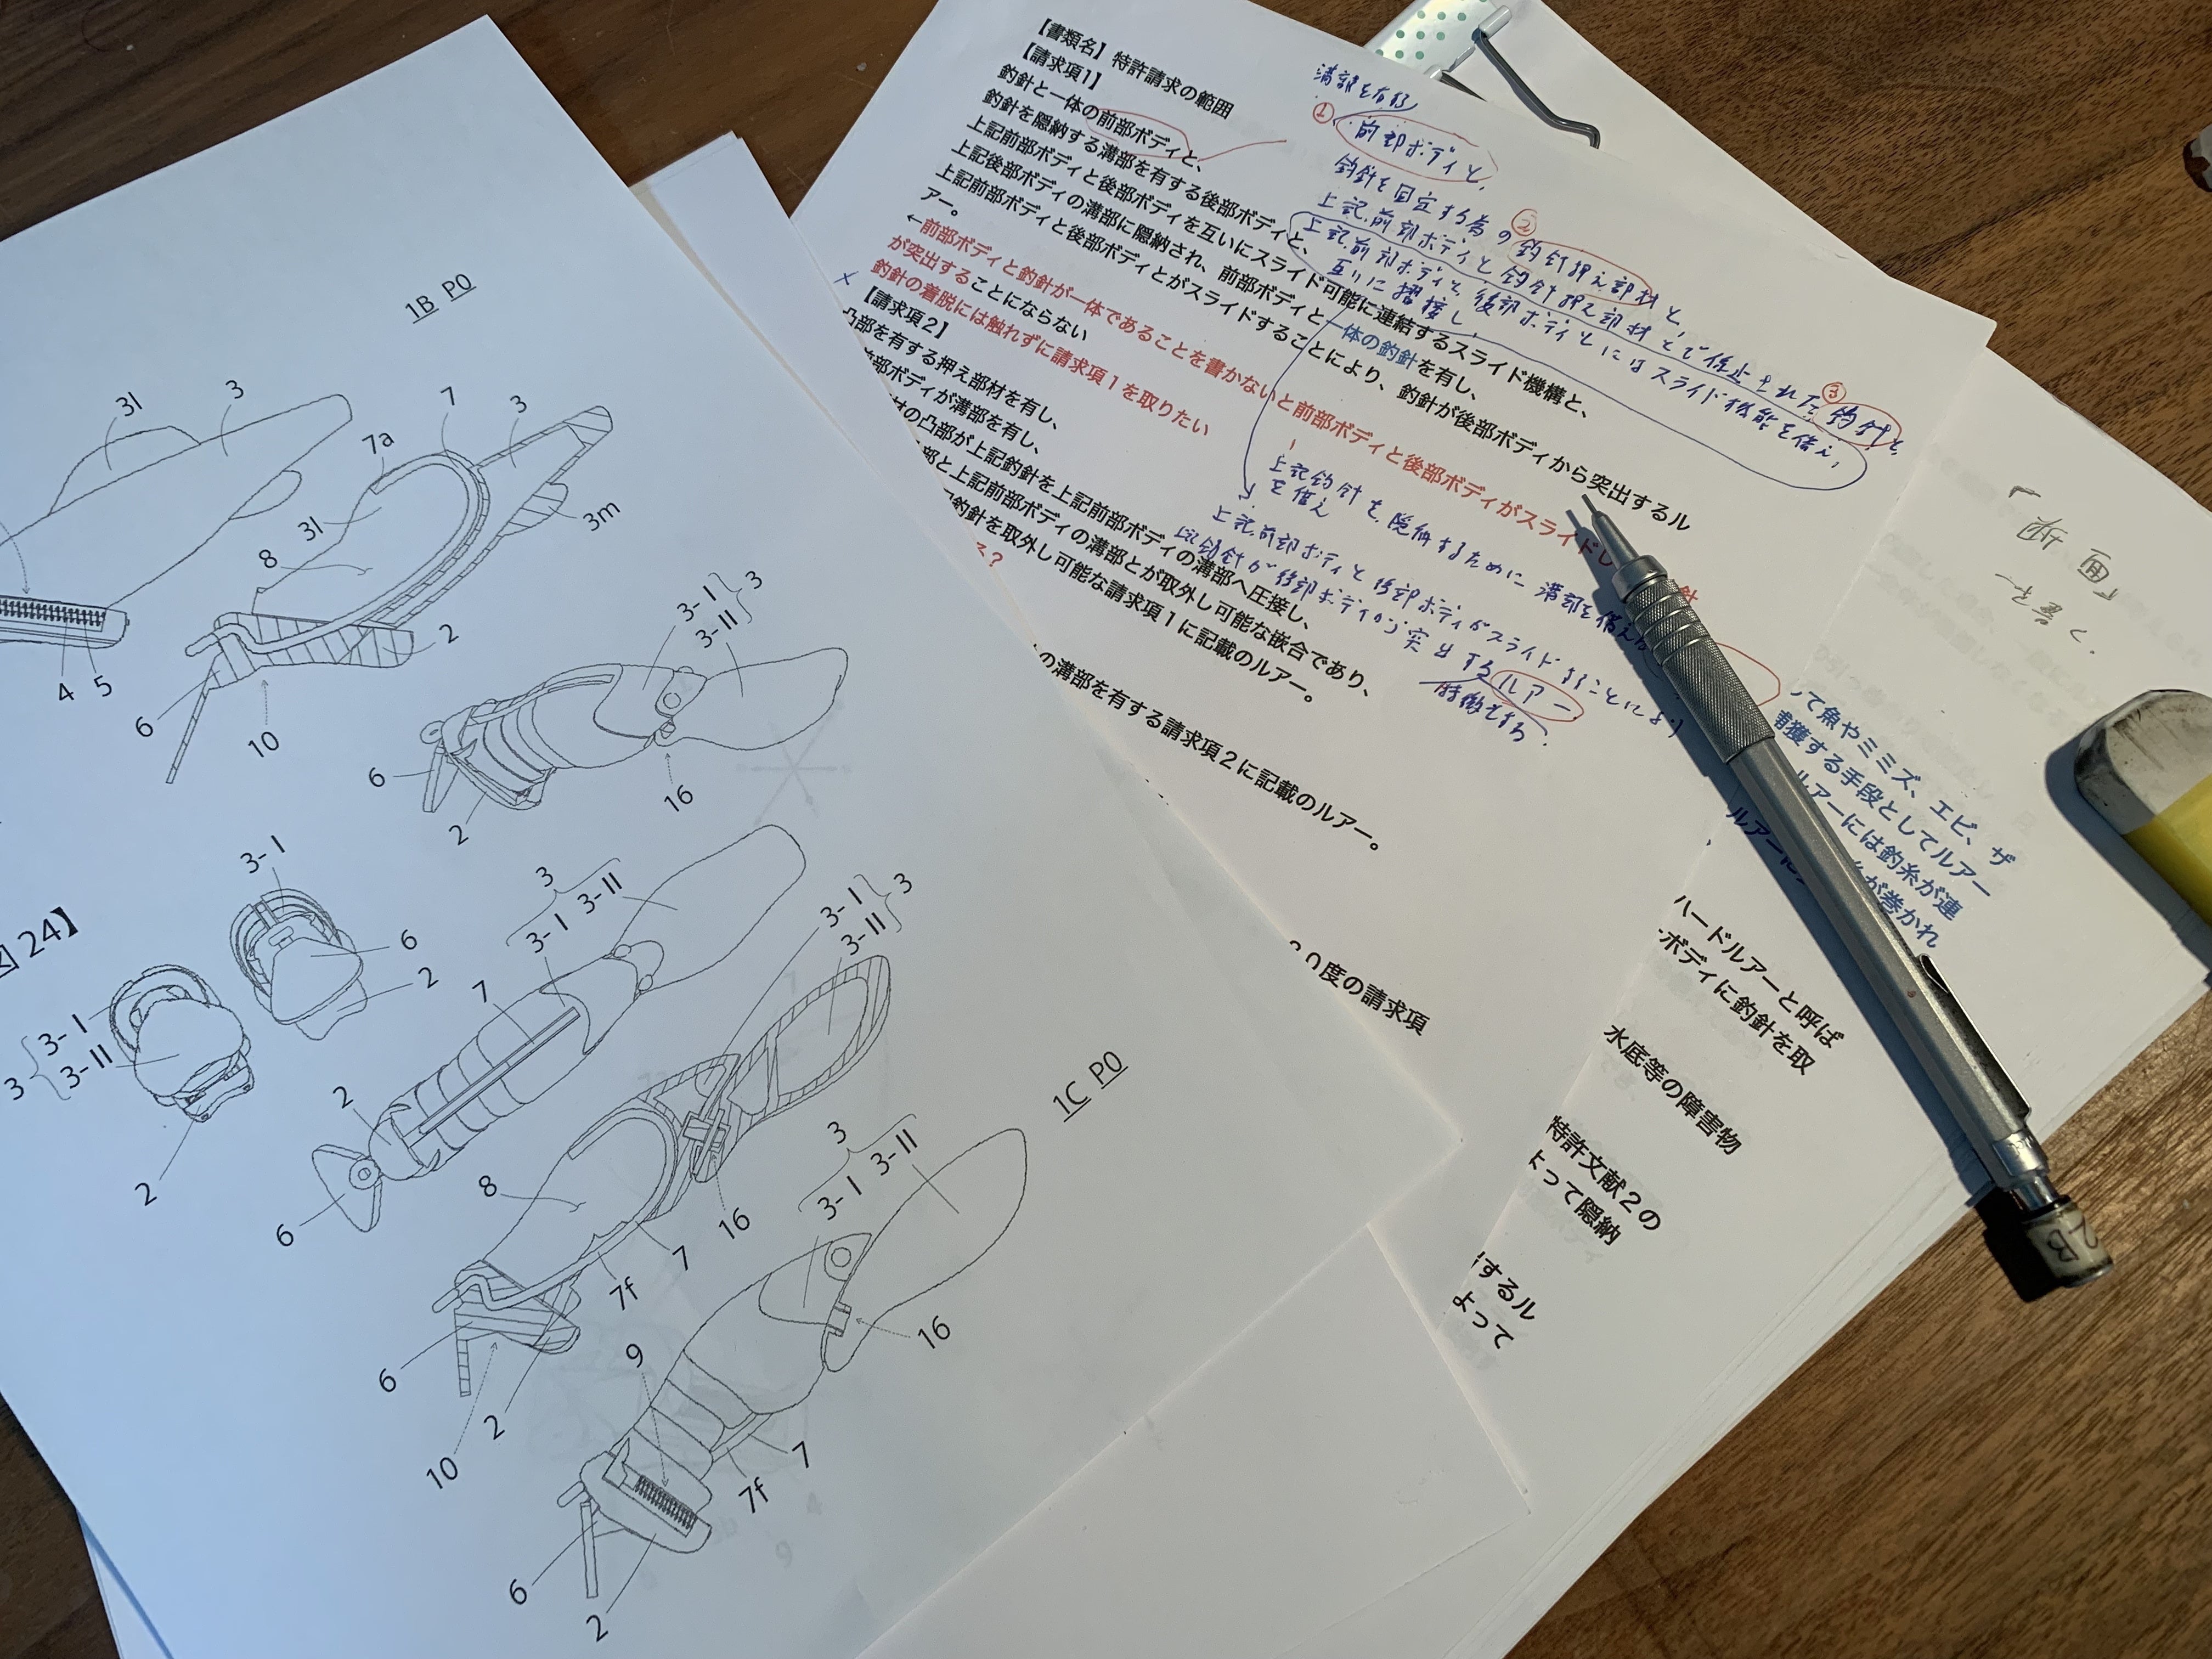 1B P0
3l
3
7
3
7a
3l
3m
8
2
4 5
6
10
3-I
3-II
3
6
2
16
図 24】
3-I
6
2
3-I
3-II
3
2
3
3-I 3-II
7
2
6
3-I
3-II
3
8
16
7
7f
6
2
10
1C P0
3
3-I 3-II
16
9
7
7f
6
2
【書類名】特許請求の範囲
【請求項1】
釣針と一体の前部ボディと、
釣針を隠納する溝部を有する後部ボディと、
上記前部ボディと後部ボディを互いにスライド可能に連結するスライド機構と、
上記後部ボディの溝部に隠納され、前部ボディと一体の釣針を有し、
上記前部ボディと後部ボディとがスライドすることにより、釣針が後部ボディから突出するル
アー。
←前部ボディと釣針が一体であることを書かないと前部ボディと後部ボディがスライドし 針
が突出することにならない
釣針の着脱には触れずに請求項1を取りたい
×
【請求項2】
凸部を有する押え部材を有し、
前部ボディが溝部を有し、
材の凸部が上記釣針を上記前部ボディの溝部へ圧接し、
部と上記前部ボディの溝部とが取外し可能な嵌合であり、
釣針を取外し可能な請求項1に記載のルアー。
る?
の溝部を有する請求項2に記載のルアー。
0度の請求項
溝部を有する
① 前部ボディと、
釣針を固定する為の②釣針押え部材と、
上記前部ボディと釣針押え部材とで係止された③釣針と、
上記前部ボディと後部ボディとにはスライド機能を備え、
互いに摺接し
上記釣針を隠併するために溝部を備え
を備え
上記前部ボディと後部ボディがスライドすることにより
釣針が後部ボディから突出するルアー。
特徴とする
「断面」
と書く。
って魚やミミズ、エビ、ザ
捕獲する手段としてルアー
ルアーには釣糸が連
が巻かれ
ハードルアーと呼ば
ボディに釣針を取
水底等の障害物
特許文献2の
よって隠納
するル
よって
2B